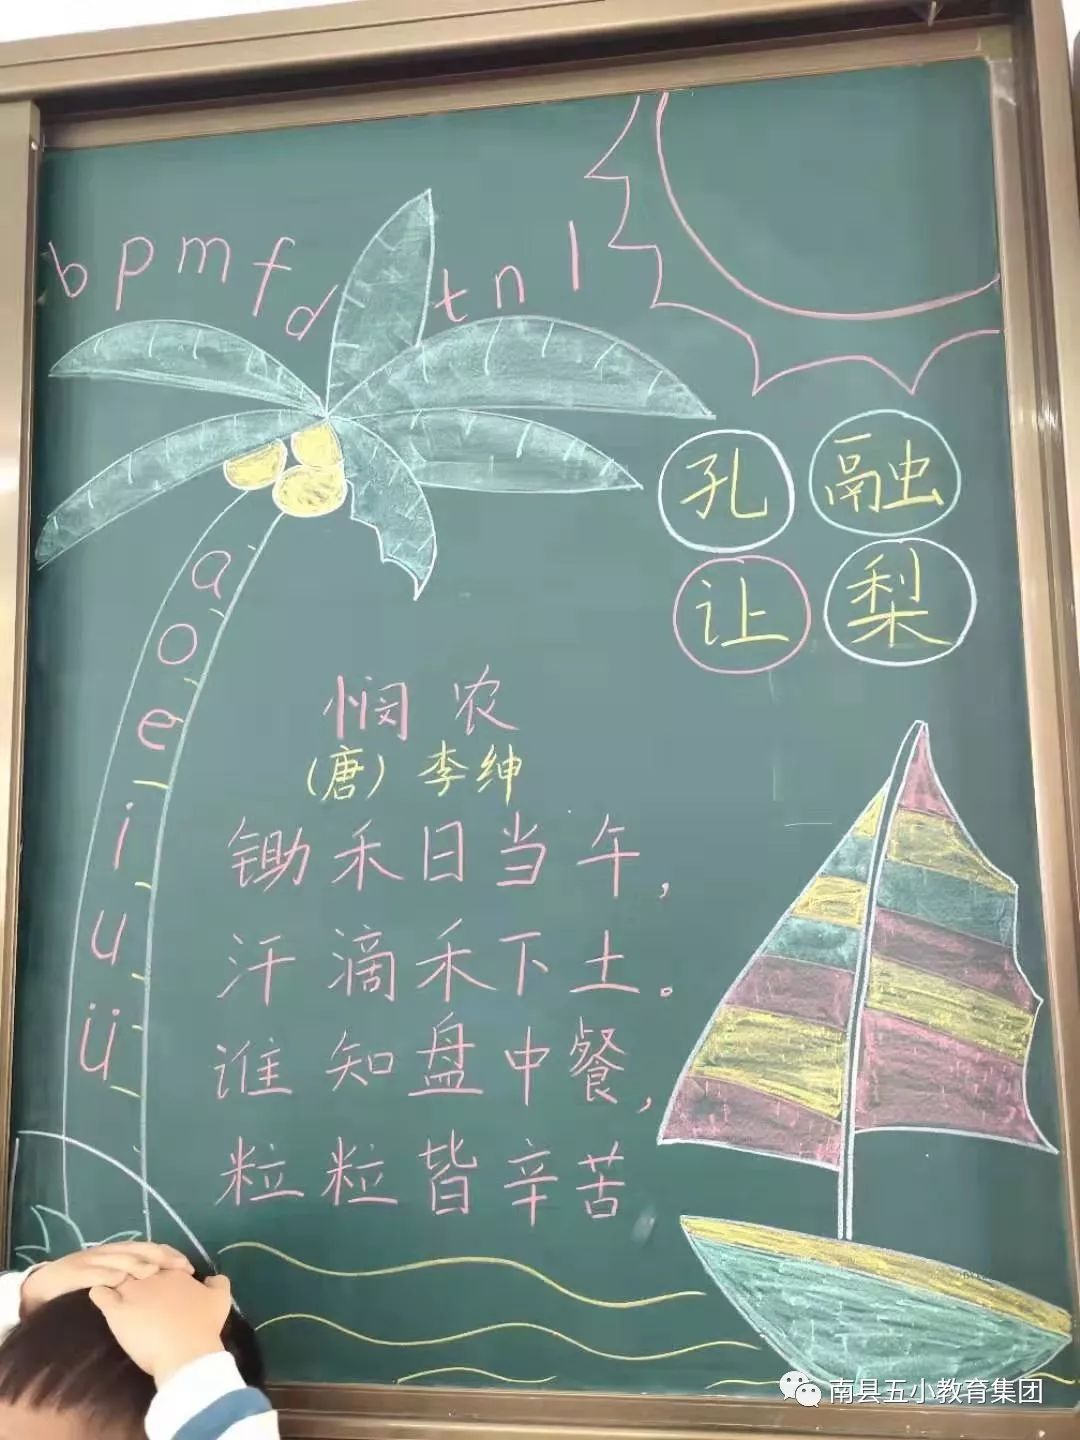 b p m f d t n l
孔融
让梨
a
o
e
i
u
ü
悯农
(唐)李绅
锄禾日当午,
汗滴禾下土。
谁知盘中餐,
粒粒皆辛苦
南县五小教育集团